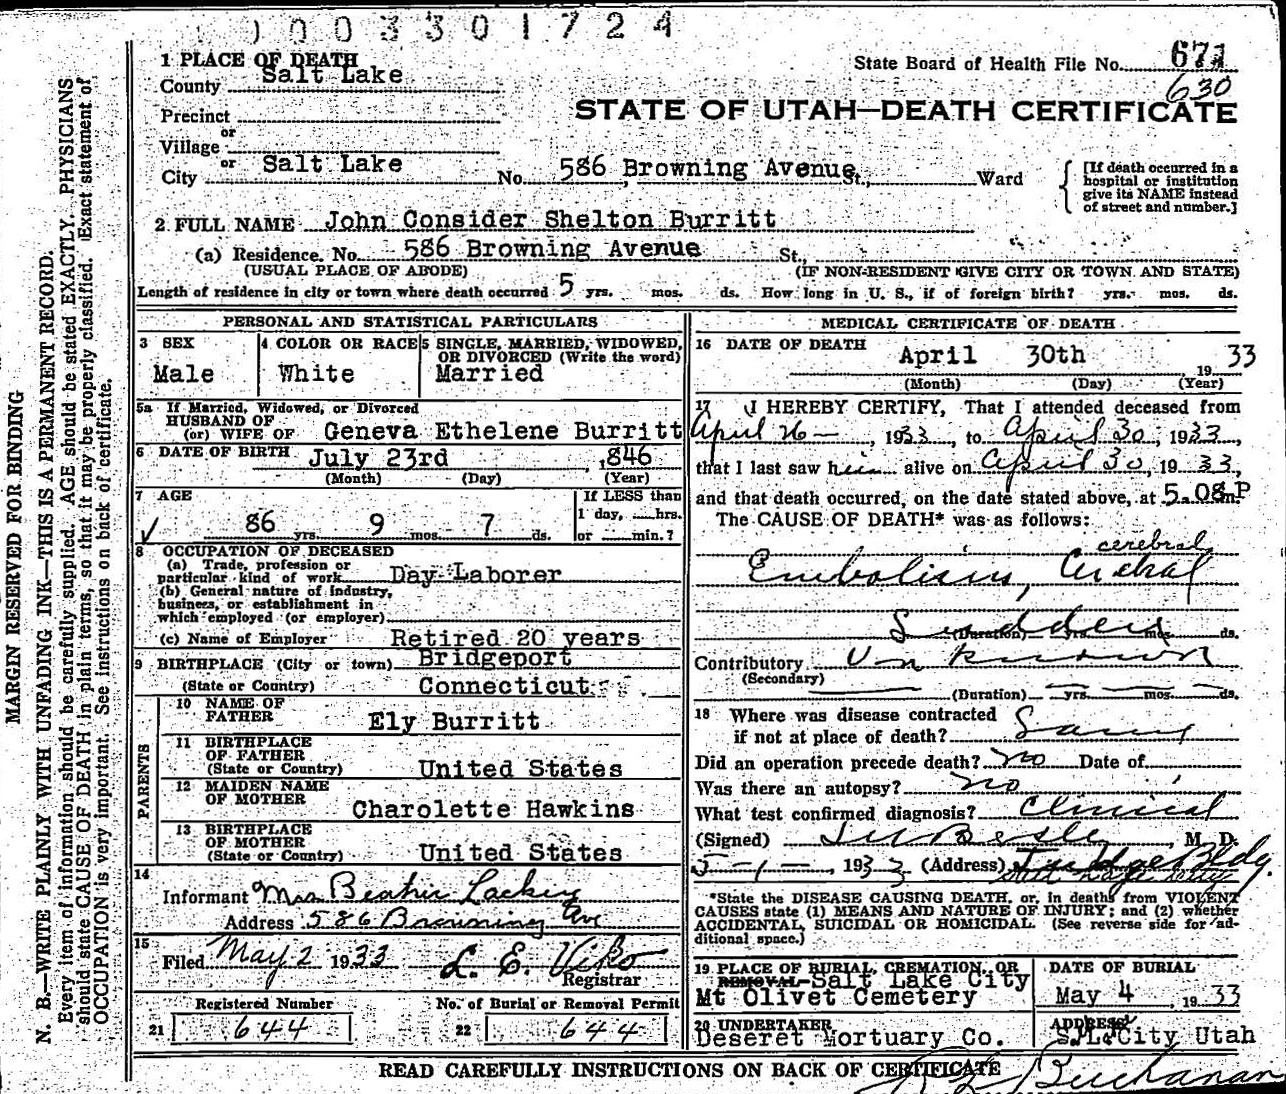 1003301724
1 PLACE OF DEATH
County Salt Lake
State Board of Health File No. 671
630
STATE OF UTAH—DEATH CERTIFICATE
Precinct
or
Village
or
City Salt Lake No. 586 Browning Avenue St., Ward
[If death occurred in a hospital or institution give its NAME instead of street and number.]
2 FULL NAME John Consider Shelton Burritt
(a) Residence. No. 586 Browning Avenue St.,
(USUAL PLACE OF ABODE) (IF NON-RESIDENT GIVE CITY OR TOWN AND STATE)
Length of residence in city or town where death occurred 5 yrs. mos. ds. How long in U. S., if of foreign birth? yrs. mos. ds.
PERSONAL AND STATISTICAL PARTICULARS
3 SEX
Male
4 COLOR OR RACE
White
5 SINGLE, MARRIED, WIDOWED,
OR DIVORCED (Write the word)
Married
5a If Married, Widowed, or Divorced
HUSBAND OF
(or) WIFE OF Geneva Ethelene Burritt
6 DATE OF BIRTH July 23rd , 1846
(Month) (Day) (Year)
7 AGE
86 yrs. 9 mos. 7 ds.
If LESS than
1 day, hrs.
or min.?
8 OCCUPATION OF DECEASED
(a) Trade, profession or
particular kind of work Day Laborer
(b) General nature of industry,
business, or establishment in
which employed (or employer)
(c) Name of Employer Retired 20 years
9 BIRTHPLACE (City or town) Bridgeport
(State or Country) Connecticut
PARENTS
10 NAME OF
FATHER Ely Burritt
11 BIRTHPLACE
OF FATHER
(State or Country) United States
12 MAIDEN NAME
OF MOTHER Charolette Hawkins
13 BIRTHPLACE
OF MOTHER
(State or Country) United States
14
Informant Mrs Beatric Lackey
Address 586 Browning Ave
15
Filed May 2 1933 L. E. Viko
Registrar
Registered Number
21 644
No. of Burial or Removal Permit
22 644
MEDICAL CERTIFICATE OF DEATH
16 DATE OF DEATH
April 30th 1933
(Month) (Day) (Year)
17 I HEREBY CERTIFY, That I attended deceased from
April 26 — , 1933, to April 30, 1933,
that I last saw him alive on April 30, 1933,
and that death occurred, on the date stated above, at 5.08 P m.
The CAUSE OF DEATH* was as follows:
cerebral
Embolism, Cerebral
Sudden
(Duration) yrs. mos. ds.
Contributory Unknown
(Secondary)
(Duration) yrs. mos. ds.
18 Where was disease contracted
if not at place of death? Same
Did an operation precede death? No Date of
Was there an autopsy? no
What test confirmed diagnosis? Clinical
(Signed) , M. D.
5-1- , 1933 (Address) Judge Bldg.
*State the DISEASE CAUSING DEATH, or, in deaths from VIOLENT
CAUSES state (1) MEANS AND NATURE OF INJURY; and (2) whether
ACCIDENTAL, SUICIDAL OR HOMICIDAL. (See reverse side for ad-
ditional space.)
19 PLACE OF BURIAL, CREMATION, OR
REMOVAL Salt Lake City
Mt Olivet Cemetery
DATE OF BURIAL
May 4 , 1933
20 UNDERTAKER
Deseret Mortuary Co.
ADDRESS
S.L.City Utah
READ CAREFULLY INSTRUCTIONS ON BACK OF CERTIFICATE
Buchanan
MARGIN RESERVED FOR BINDING
N. B.—WRITE PLAINLY WITH UNFADING INK—THIS IS A PERMANENT RECORD.
Every item of information should be carefully supplied. AGE should be stated EXACTLY. PHYSICIANS
should state CAUSE OF DEATH in plain terms, so that it may be properly classified. Exact statement of
OCCUPATION is very important. See instructions on back of certificate.